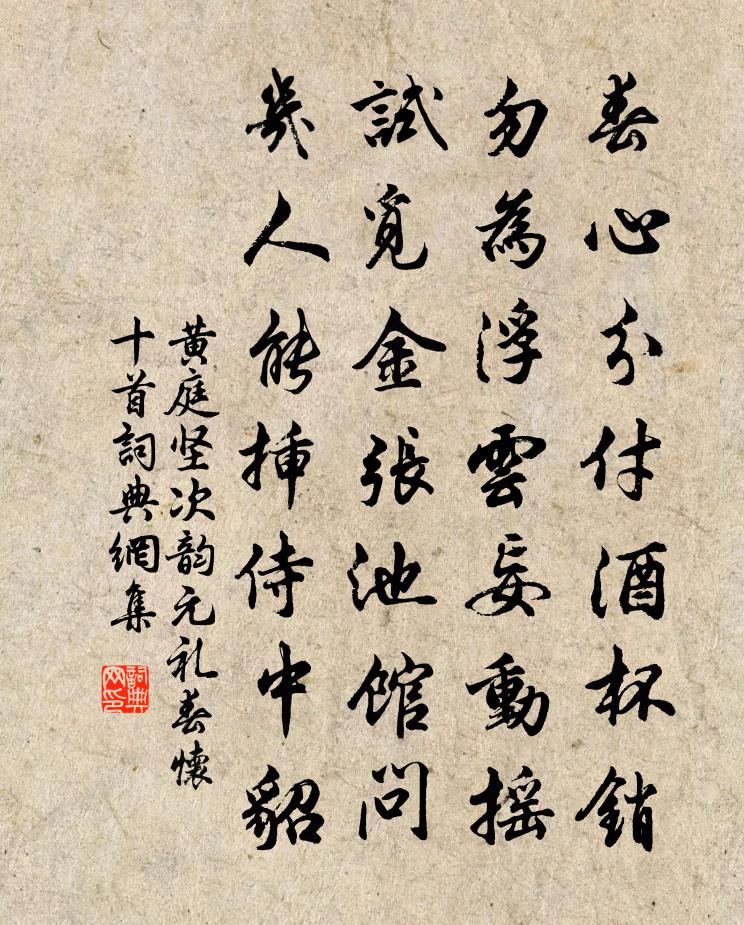 春心分付酒杯銷
勿為浮雲妄動摇
試覓金張池館問
幾人能插侍中貂
黄庭坚次韵元礼春懷
十首詞典網集
詞典网印